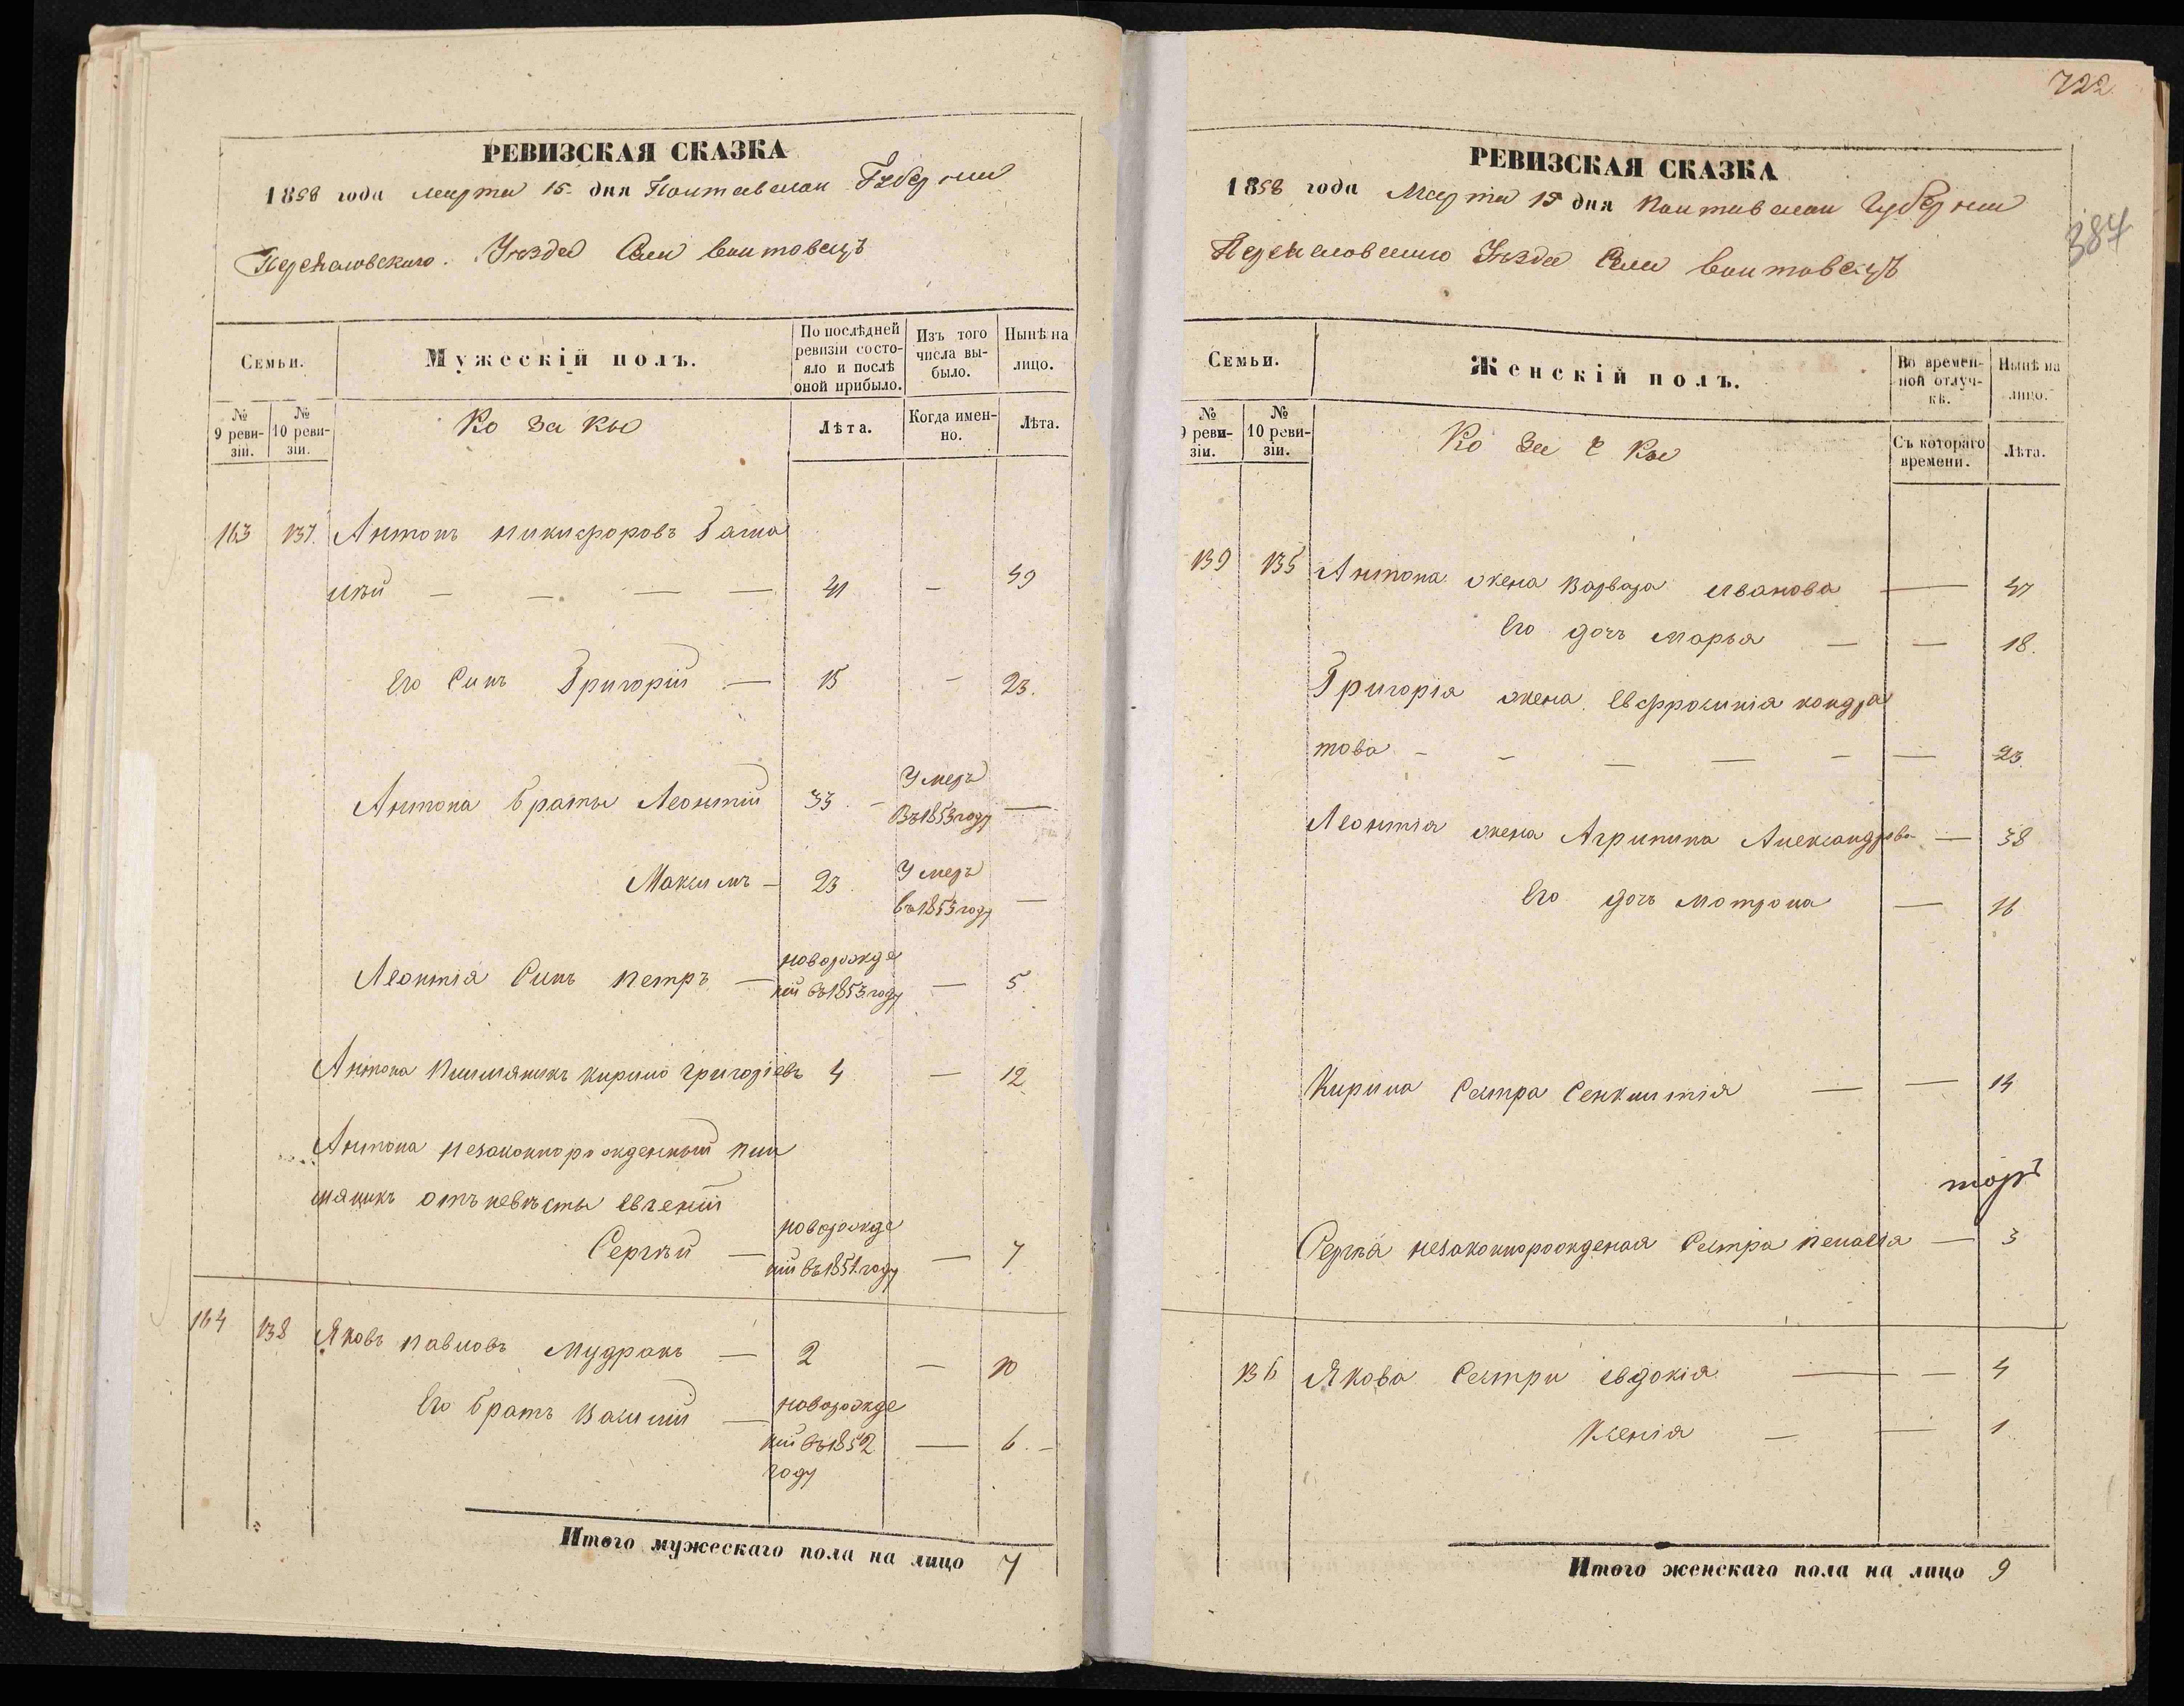 РЕВИЗСКАЯ СКАЗКА
1858 года марта 15 дня Полтавской Губернии
Переяславского Уезда Села Войтовецъ
Семьи.
Мужескій полъ.
По послѣдней ревизіи состояло и послѣ оной прибыло.
Изъ того числа выбыло.
Нынѣ на лицо.
№ 9 ревизіи.
№ 10 ревизіи.
Козаки
Лѣта.
Когда именно.
Лѣта.
163 137. Антонъ Никифоровъ
41 — 49
Его Синъ Григорій — 15 — 23.
Антона браты Леонтій 33. — Умеръ въ 1853 году —
Максимъ — 23. Умеръ въ 1853 году —
Леонтія Синъ Петръ — новорожде
ній въ 1853 году — 5.
Антона Кирило Григоріевъ 4 — 12
Антона незаконнорожденный пли
мяникъ отъ невѣсты Евгеніи
Сергѣй — новорожде
ній въ 1851 году — 7
164 138 Яковъ Павловъ Мудракъ — 2 — 10
Его братъ Василій — новорожде
ній въ 1852 году — 6. —
Итого мужескаго пола на лицо 7
722.
384
РЕВИЗСКАЯ СКАЗКА
1858 года Марта 15 дня Полтавской Губернии
Переяславского Уезда Села Войтовецъ
Семьи.
Женскій полъ.
Во временной отлучкѣ.
Нынѣ на лицо.
№ 9 ревизіи.
№ 10 ревизіи.
Козачки
Съ котораго времени.
Лѣта.
139 135 Антона жена Варвара Иванова — 47
Его дочъ Марья — — 18.
Григорія жена Евфросинія Кондра
това — — — — — — 23.
Леонтія жена Агрипина Александрова — 38
Его дочъ Мотрона — 16
Кирила Сестра — — 14
Сергѣя незаконнорожденая Сестра Пелагія — 3
136 Якова Сестри Евдокія — — 4
Ксенія — — 1
Итого женскаго пола на лицо 9